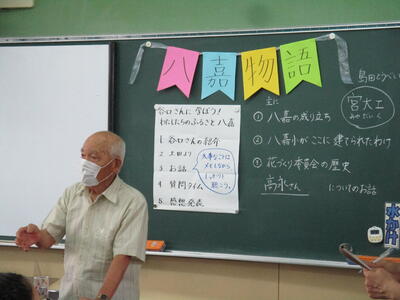 八嘉物語
谷口さんに学ぼう！
わたしたちのふるさと 八嘉
1 谷口さんの紹介
3 お話
4 質問タイム
5 感想発表
大事なことは
メモしながら
しっかり
聴こう。
主に
① 八嘉の成り立ち
② 八嘉小がここに建てられたわけ
③ 花づくり委員会の歴史
についてのお話
宮大工
みやだいく